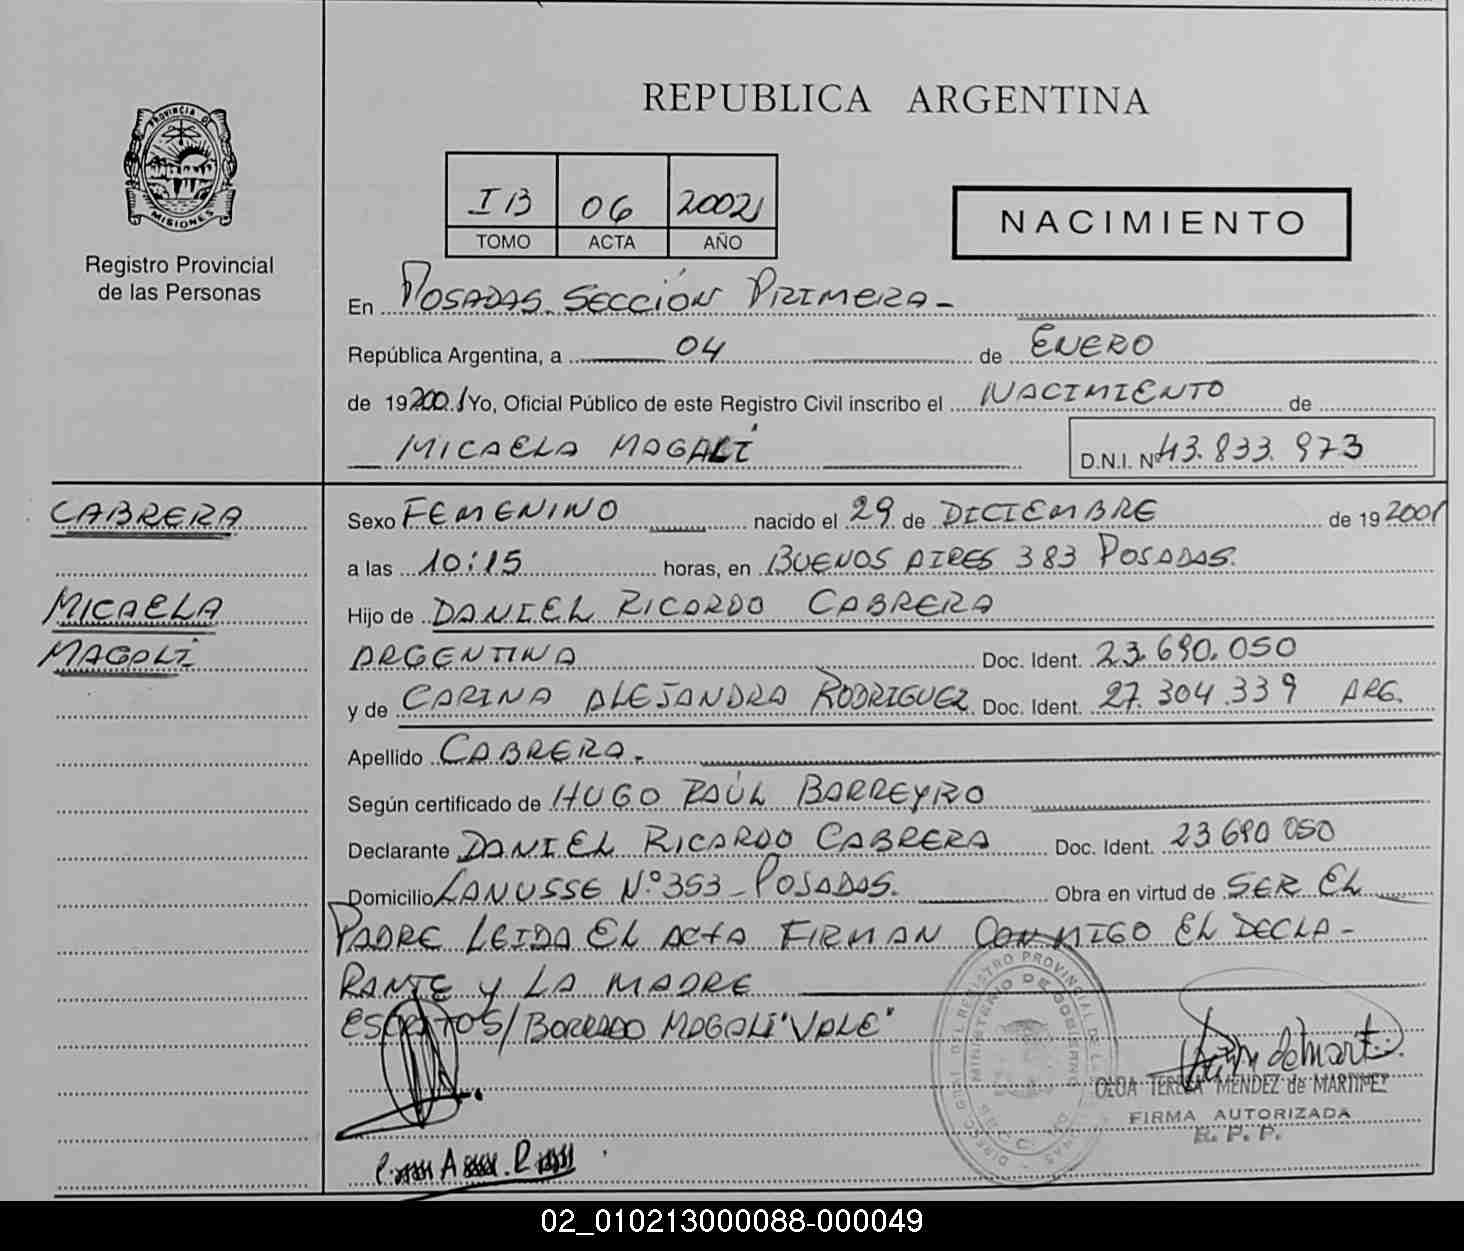 REPUBLICA ARGENTINA
PROVINCIA DE
MISIONES
Registro Provincial
de las Personas
IB 06 2002
TOMO ACTA AÑO
NACIMIENTO
En POSADAS. SECCIÓN PRIMERA-
República Argentina, a 04 de ENERO
de 19 200 Yo, Oficial Público de este Registro Civil inscribo el NACIMIENTO de
MICAELA MAGALÍ
D.N.I. Nº 43.833.973
CABRERA
MICAELA
MAGALÍ
Sexo FEMENINO nacido el 29 de DICIEMBRE de 19 2001
a las 10:15 horas, en BUENOS AIRES 383 POSADAS.
Hijo de DANIEL RICARDO CABRERA
ARGENTINA Doc. Ident. 23.690.050
y de CARINA ALEJANDRA RODRIGUEZ Doc. Ident. 27.304.339 ARG.
Apellido CABRERA.
Según certificado de HUGO RAÚL BARREYRO
Declarante DANIEL RICARDO CABRERA Doc. Ident. 23690050
Domicilio LANUSSE N.º 353_POSADAS. Obra en virtud de SER EL
PADRE LEIDA EL ACTA FIRMAN CONMIGO EL DECLA-
RANTE Y LA MADRE
ES/BORRADO MAGALÍ "VALE"
OLGA TERESA MENDEZ de MARTINEZ
FIRMA AUTORIZADA
R. P. P.
02_010213000088-000049